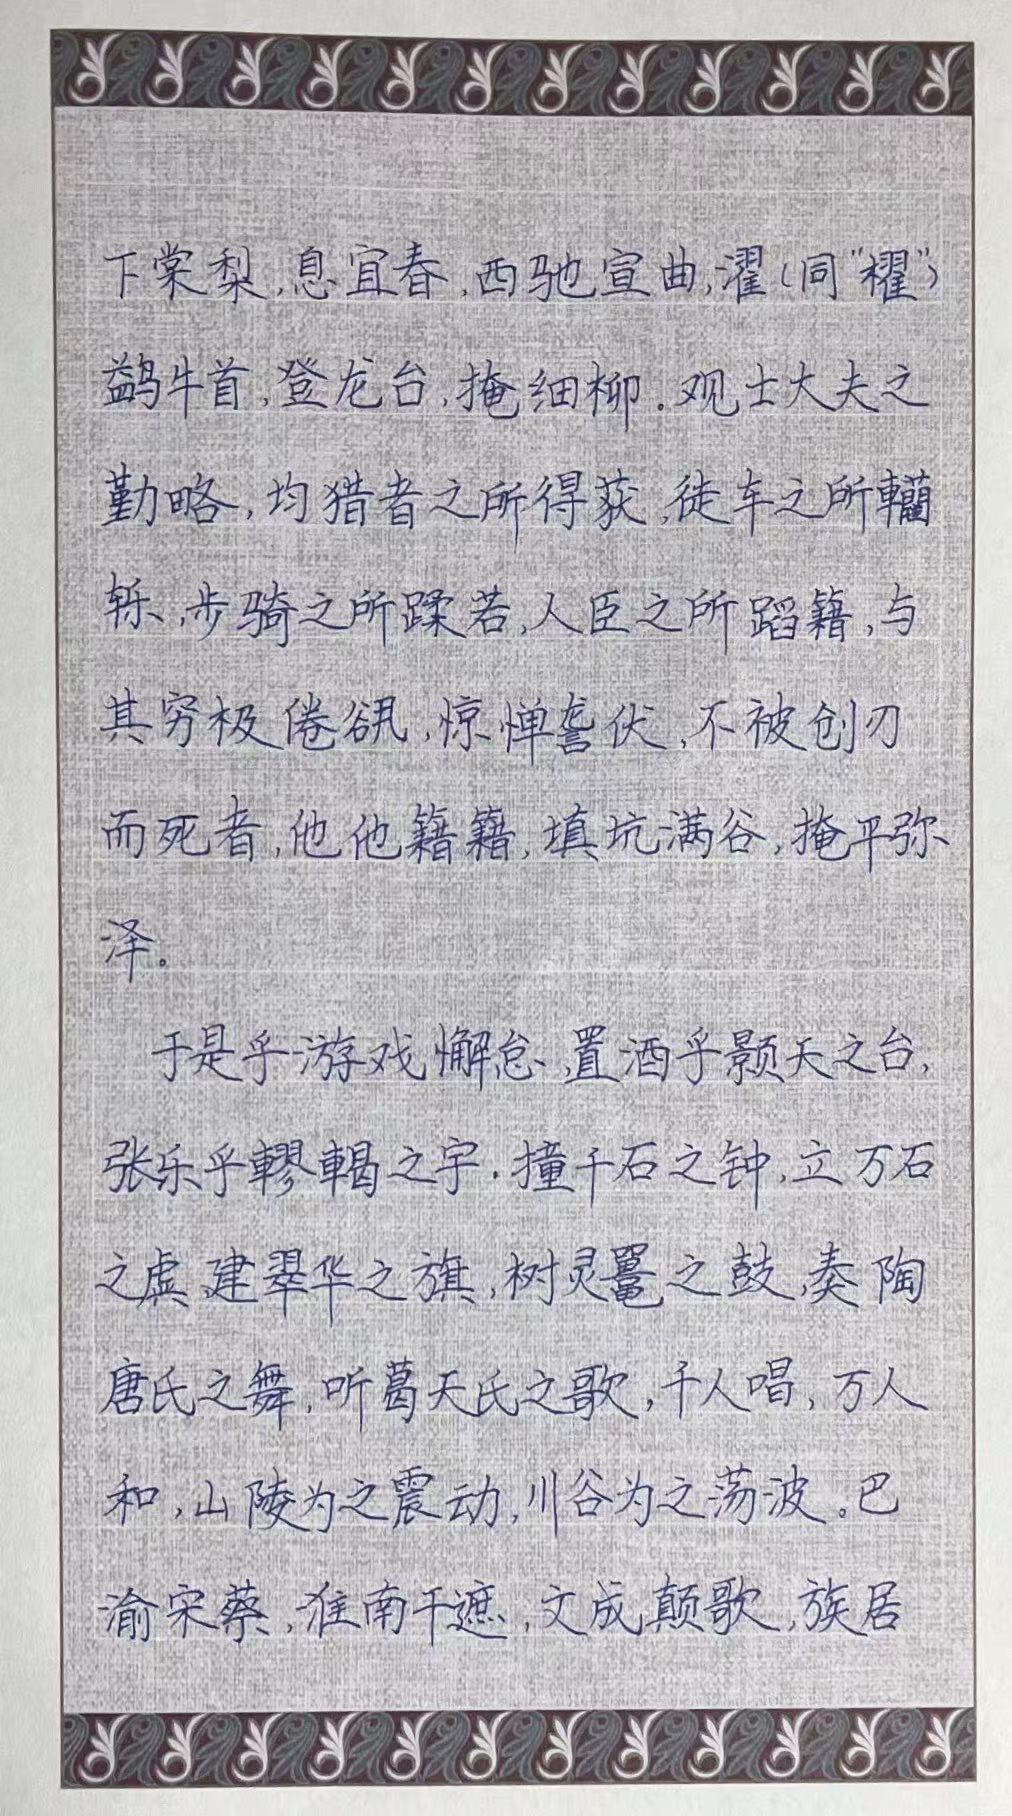 下棠梨,息宜春,西驰宣曲,濯(同“櫂”)
鹢牛首,登龙台,掩细柳。观士大夫之
勤略,均猎者之所得获,徒车之所轥
轹,步骑之所蹂若,人臣之所蹈籍,与
其穷极倦𧮭,惊惮詟伏,不被创刃
而死者,他他籍籍,填坑满谷,掩平弥
泽。
于是乎游戏懈怠,置酒乎颢天之台,
张乐乎轇輵之宇.撞千石之钟,立万石
之虡,建翠华之旗,树灵鼍之鼓,奏陶
唐氏之舞,听葛天氏之歌,千人唱,万人
和,山陵为之震动,川谷为之荡波。巴
渝宋蔡,淮南干遮,文成颠歌,族居